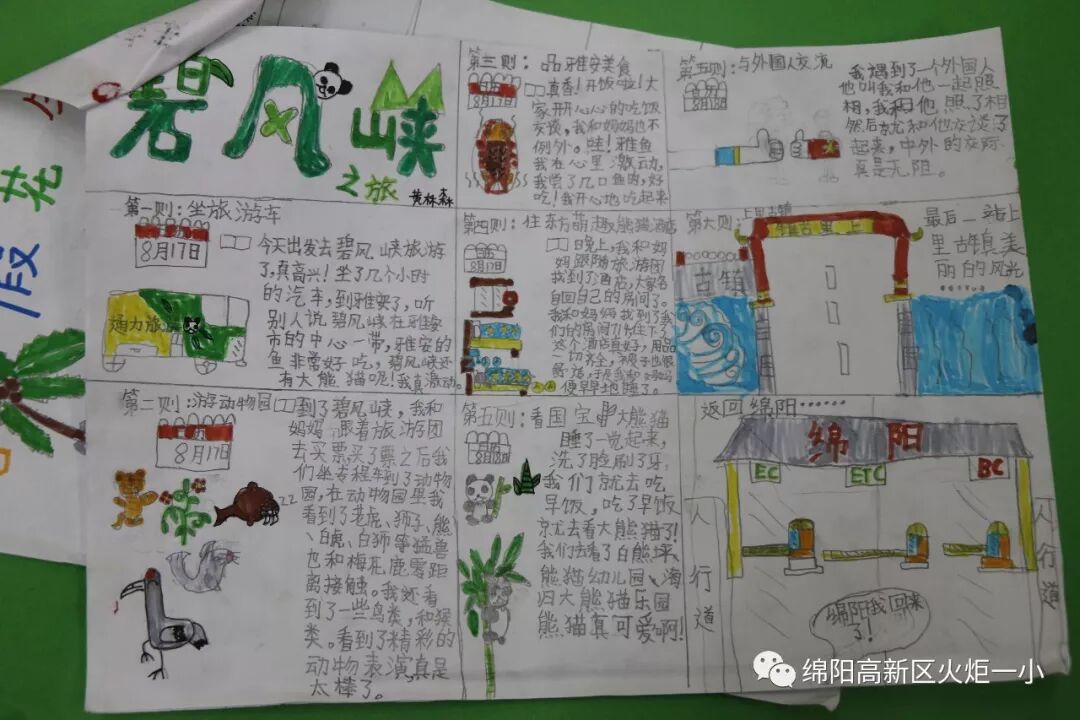 碧风峡
之旅
黄林森
第一则：坐旅游车
8月17日
今天出发去碧风峡旅游
了，真高兴！坐了几个小时
的汽车，到雅安了，听
别人说碧风峡在雅安
市的中心一带，雅安的
鱼非常好吃，碧风峡还
有大熊猫呢！我真激动。
通力旅
第二则：游动物园
8月17日
到了碧风峡，我和
妈妈跟着旅游团
去买票买了票之后我
们坐专程车到了动物
园，在动物园里我
看到了老虎、狮子、熊
、白虎、白狮等猛兽
也和梅花鹿零距
离接触。我还看
到了一些鸟类，和猴
类。看到了精彩的
动物表演，真是
太棒了。
第三则：品雅安美食
8月17日
真香！开饭啦！大
家开开心心的吃饭
交谈，我和妈妈也不
例外。哇！雅鱼
我在心里激动，
我尝了几口鱼肉，好
吃！我开心地吃起来
第四则：住东方萌趣熊猫酒店
8月17日
晚上，我和妈
妈跟随旅游团
找到了酒店，大家各
自回自己的房间了。
我和妈妈找到了我
们的房间
这个酒店真好，用品
一切齐全，被子也很
便早早地睡了。
第五则：看国宝大熊猫
8月18日
睡了一觉起来，
洗了脸刷了牙，
我们就去吃
早饭，吃了早饭
就去看大熊猫了！
我们去看了白熊坪、
熊猫幼儿园、海
归大熊猫乐园
熊猫真可爱啊！
第五则：与外国人交流
8月18日
我遇到了一个外国人
他叫我和他一起照
相，我和他照了相
然后就和他交谈了
起来，中外的交际
真是无阻。
第六则：上里古镇
古镇
镇古里上
最后一站上
里古镇美
丽的风光
返回绵阳······
绵阳
EC
ETC
BC
人行道
人行道
绵阳我回来
了！
绵阳高新区火炬一小